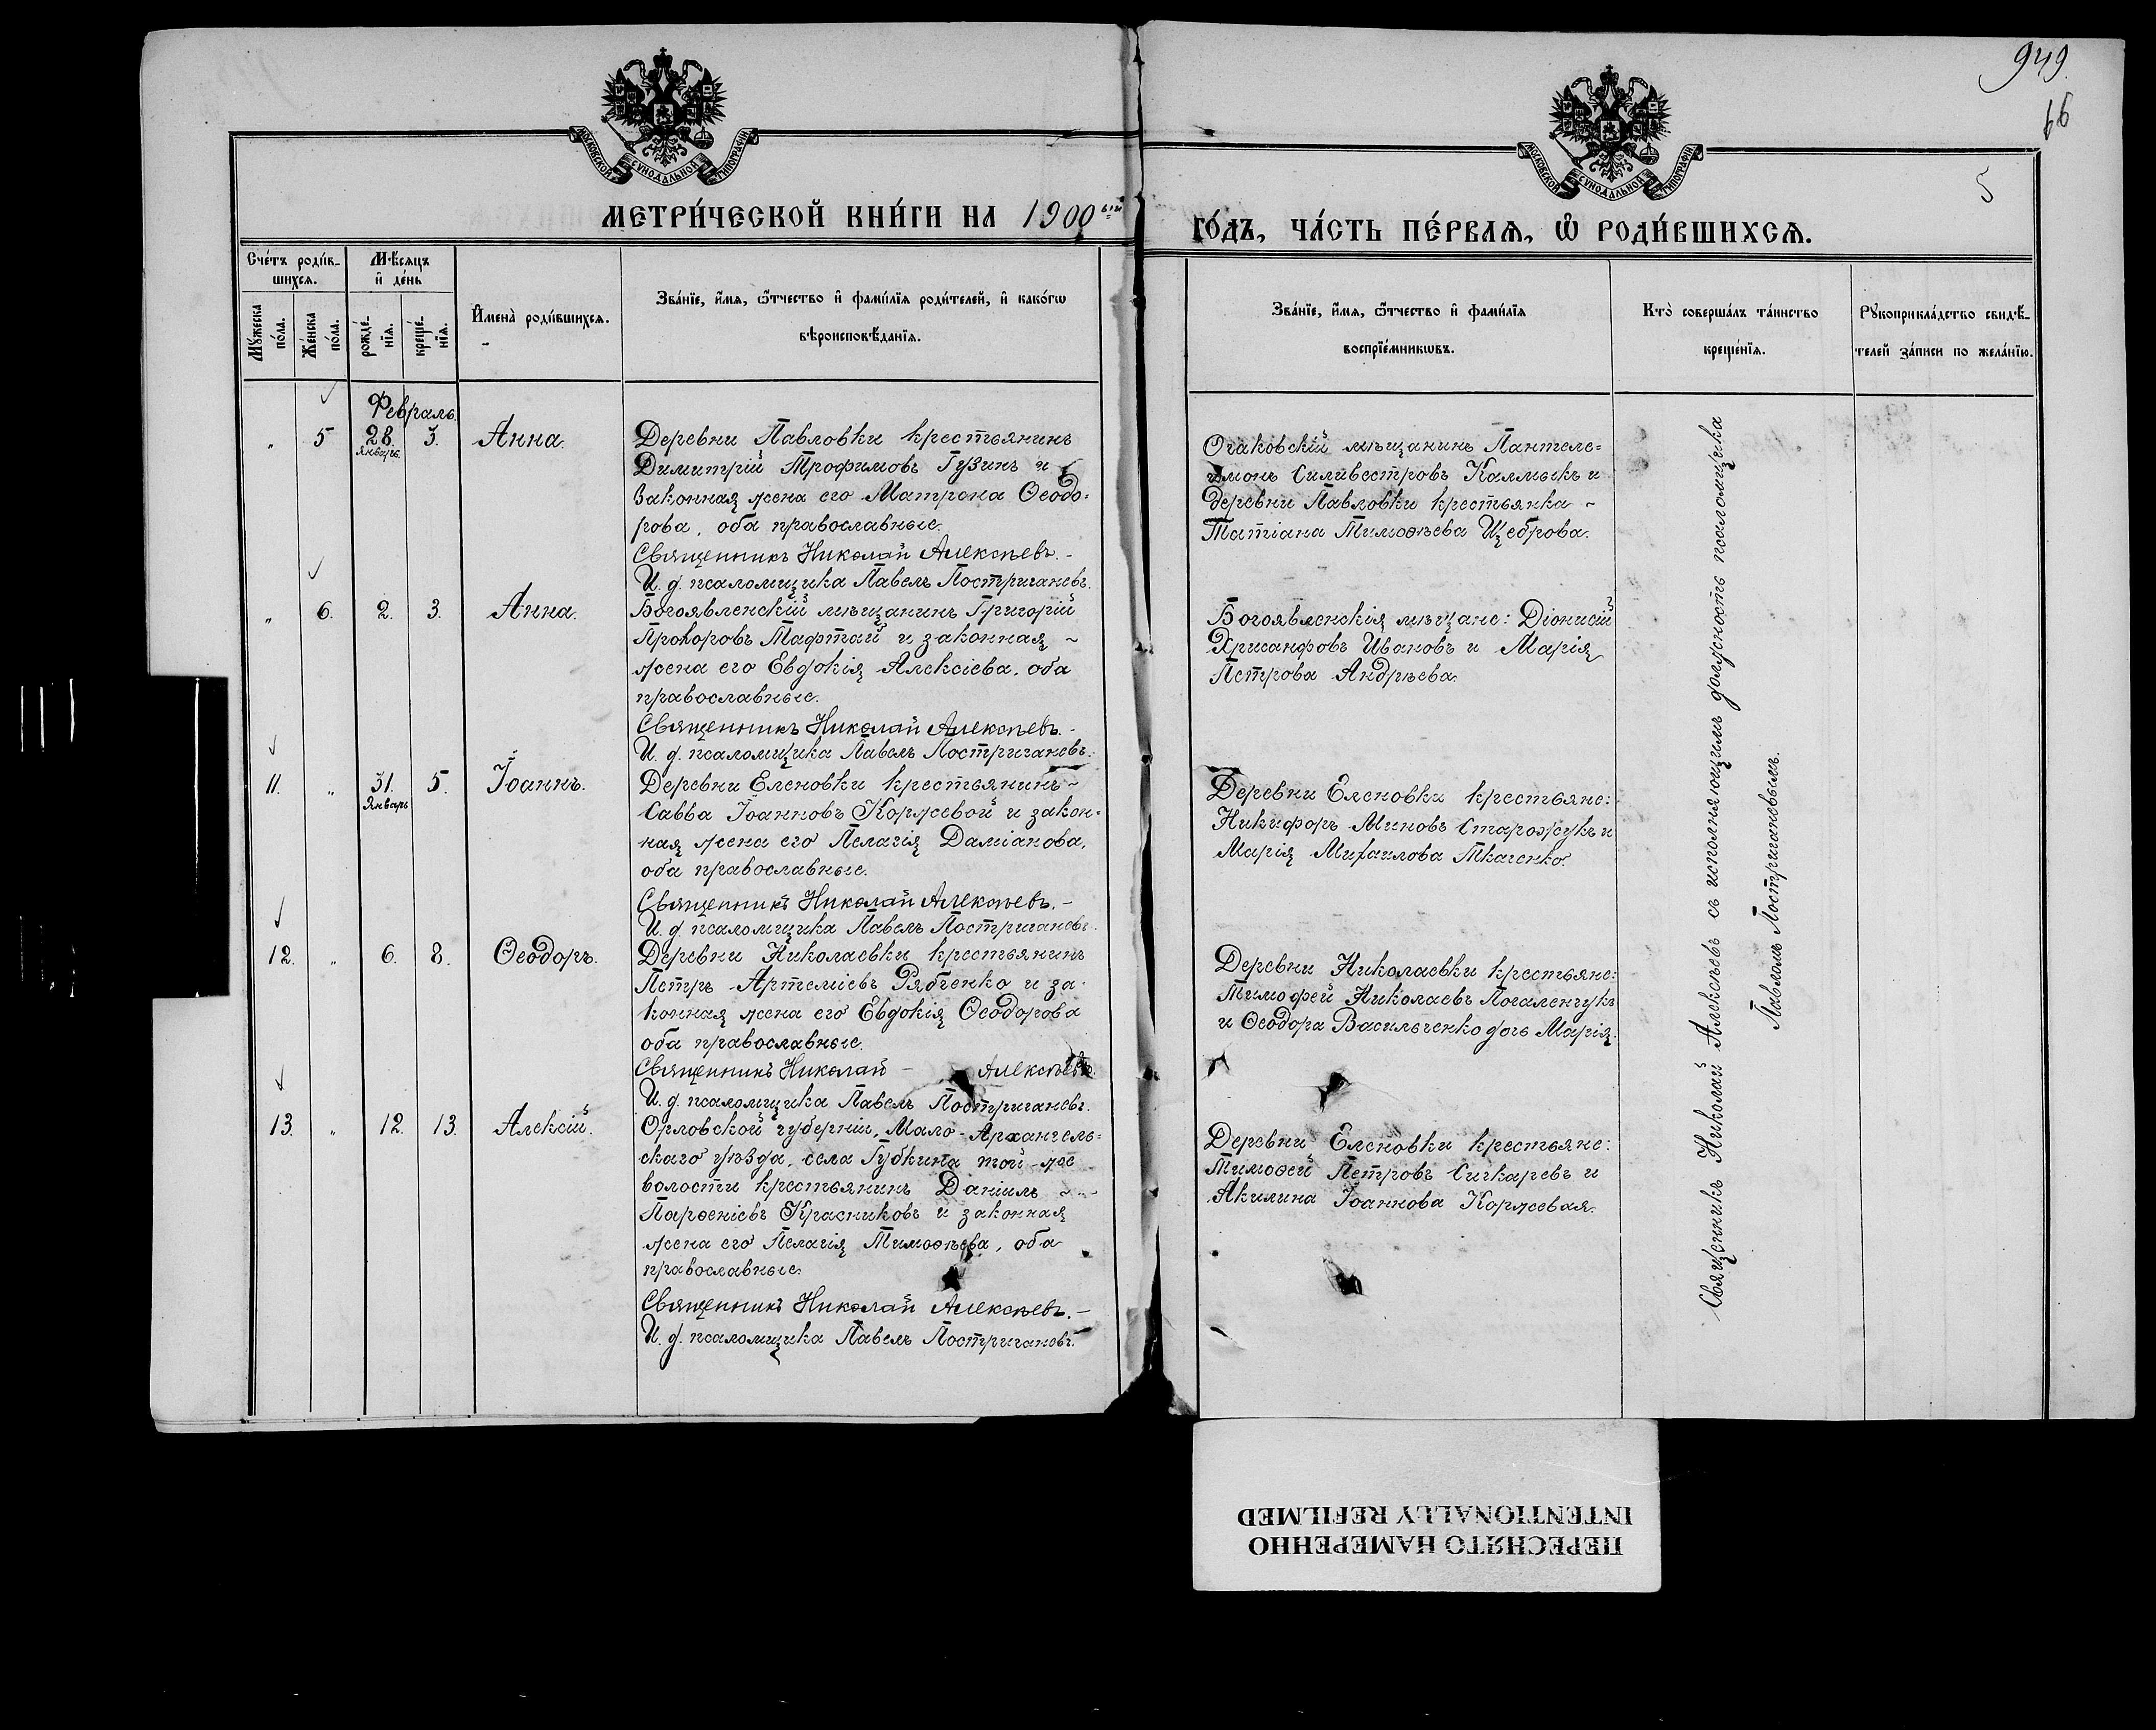 949.
66
5
МОСКОВСКОЙ СѴНОДАЛЬНОЙ ТИПОГРАФІИ
МОСКОВСКОЙ СѴНОДАЛЬНОЙ ТИПОГРАФІИ
МЕТРИ́ЧЕСКОЙ КНИ́ГИ НА 1900
ГО́ДЪ, ЧА́СТЬ ПЕ́РВАѦ, Ѡ҆ РОДИ́ВШИХСѦ.
Сче́тъ роди́в-
шихсѧ.
Мꙋ́жеска по́ла.
Же́нска по́ла.
Мѣ́сѧцъ
и҆ де́нь
рожде́-
нїѧ.
креще́-
нїѧ.
И҆мена̀ роди́вшихсѧ.
Зва́нїе, и҆́мѧ, ѻ҆́тчество и҆ фами́лїѧ роди́телей, и҆ како́гѡ
вѣроисповѣ́данїѧ.
Зва́нїе, и҆́мѧ, ѻ҆́тчество и҆ фами́лїѧ
воспрїе́мникѡвъ.
Кто̀ соверша́лъ та́инство
креще́нїѧ.
Рꙋкоприкла́дство свидѣ́-
телей за́писи по жела́нїю.
Февраль.
" 5 28. 3. Анна.
январь.
Деревни Павловки крестьянинъ
Димитрій Трофимовъ Гузинъ и
законная жена его Матрона Ѳеодо=
рова, оба православные.
Священникъ Николай Алексѣевъ.-
И. д. псаломщика Павелъ Постригачевъ.
Очаковскій мѣщанинъ Пантеле=
имонъ Силивестровъ Калмыкъ и
деревни Павловки крестьянка -
Татіана Тимоѳѣева Щеброва.
" 6. 2. 3. Анна.
Богоявленскій мѣщанинъ Григорій
Прохоровъ Тафтай и законная ~
жена его Евдокія Алексіева, оба
православные.
Священникъ Николай Алексѣевъ.-
И. д. псаломщика Павелъ Постригачевъ.
Богоявленскія мѣщане: Діонисій
Хрисанфовъ Ивановъ и Марія
Петрова Андрѣева.
11. " 31. 5. Іоаннъ.
Январь
Деревни Еленовки крестьянинъ ~
Савва Іоанновъ Коржевой и закон=
ная жена его Пелагія Даміанова,
оба православные.
Священникъ Николай Алексѣевъ.-
И. д. псаломщика Павелъ Постригачевъ.
Деревни Еленовки крестьяне:
Никифоръ Миновъ Старожукъ и
Марія Михаилова Ткаченко.
12. " 6. 8. Ѳеодоръ.
Деревни Николаевки крестьянинъ
Петръ Артеміевъ Рябченко и за-
конная жена его Евдокія Ѳеодорова
оба православные.
Священникъ Николай - Алексѣевъ.
И. д. псаломщика Павелъ Постригачевъ.
Деревни Николаевки крестьяне:
Тимофей Николаевъ Погаленчукъ
и Ѳеодора Васильченко дочь Марія.
13. " 12. 13. Алексій.
Орловской губерніи, Мало-Архангель=
скаго уѣзда, села Губкина той-же
волости крестьянинъ Даніилъ ~
Парѳеніевъ Красниковъ и законная
жена его Пелагія Тимоѳѣева, оба
православные.
Священникъ Николай Алексѣевъ.-
И. д. псаломщика Павелъ Постригачевъ.
Деревни Еленовки крестьяне:
Тимоѳей Петровъ Сичкаревъ и
Акилина Іоаннова Коржевая.
Священникъ Николай Алексѣевъ съ исполняющимъ должность псаломщика
Павломъ Постригачевымъ.
ПЕРЕСНЯТО НАМЕРЕННО
INTENTIONALLY REFILMED